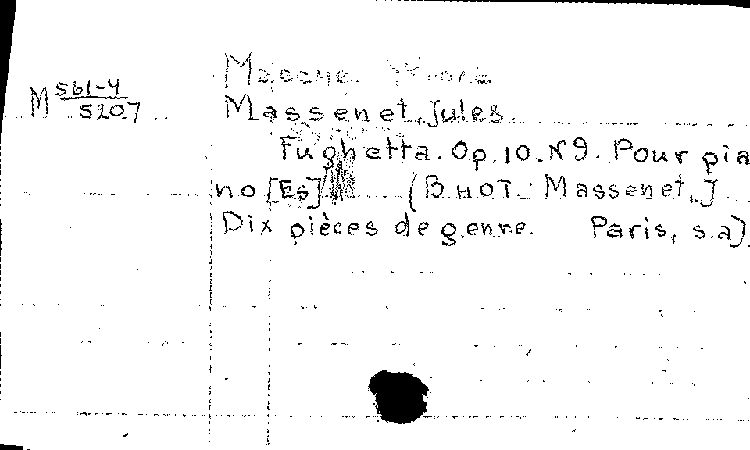 М 561-4
5207
Massenet, Jules.
Fughetta. Op. 10. N 9. Pour pia
no [Es] (В нот.: Massenet, J
Dix pièces de genre. Paris, s.a).